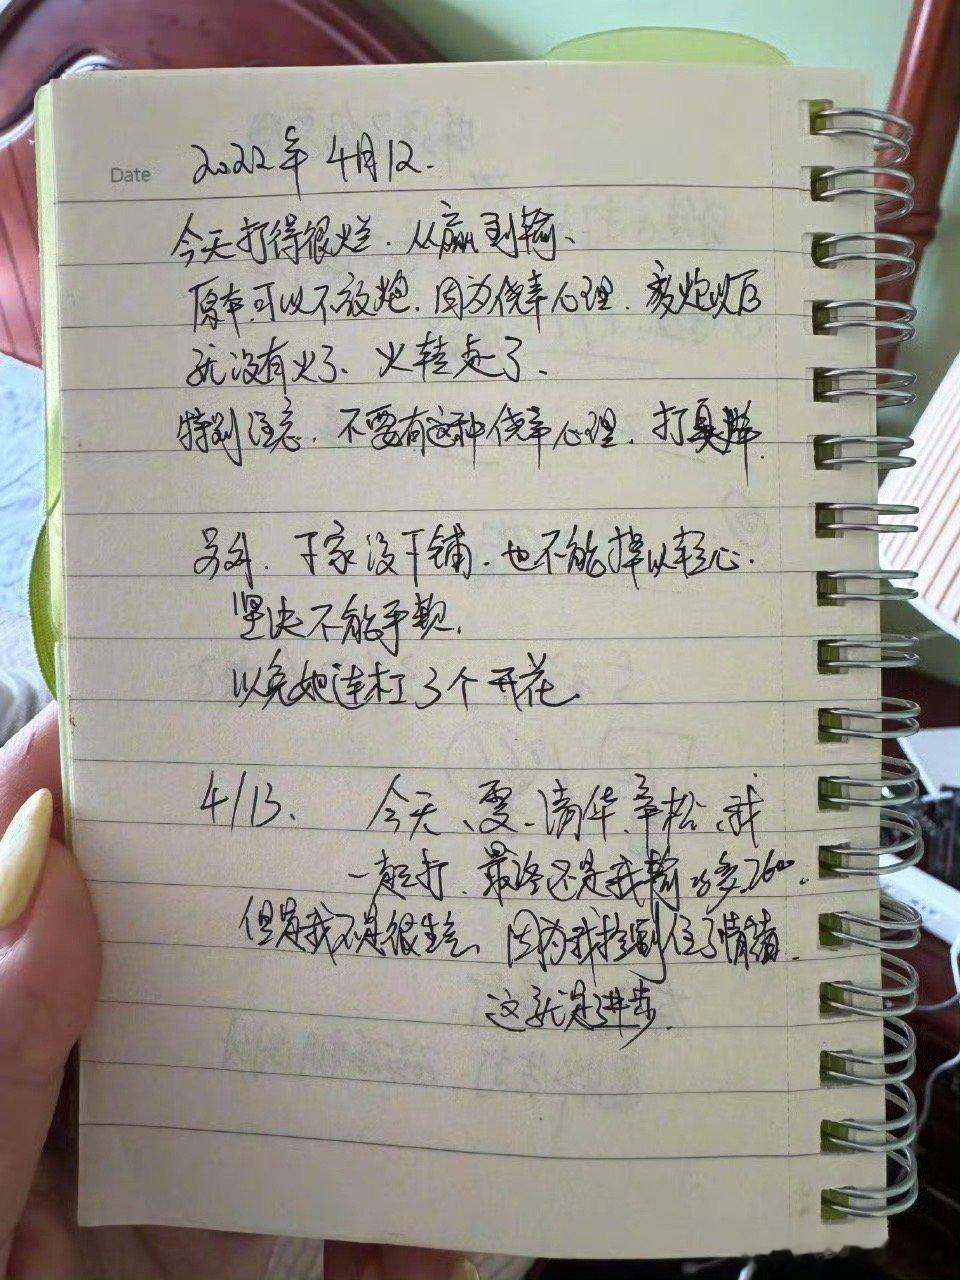 Date 2022年4月12.
今天打得很烂.从赢到输、
原本可以不放炮.因为侥幸心理.放炮以后
就没有火了、火转走了、
特别注意.不要有这种侥幸心理.打臭牌.
另外.下家没下铺.也不能掉以轻心.
坚决不能手软.
以免她连杠了3个开花
4/13、今天、雯、清华、争松、我
一起打.最终还是我输、
但是我不是很生气、因为我控制住了情绪.
这就是进步.